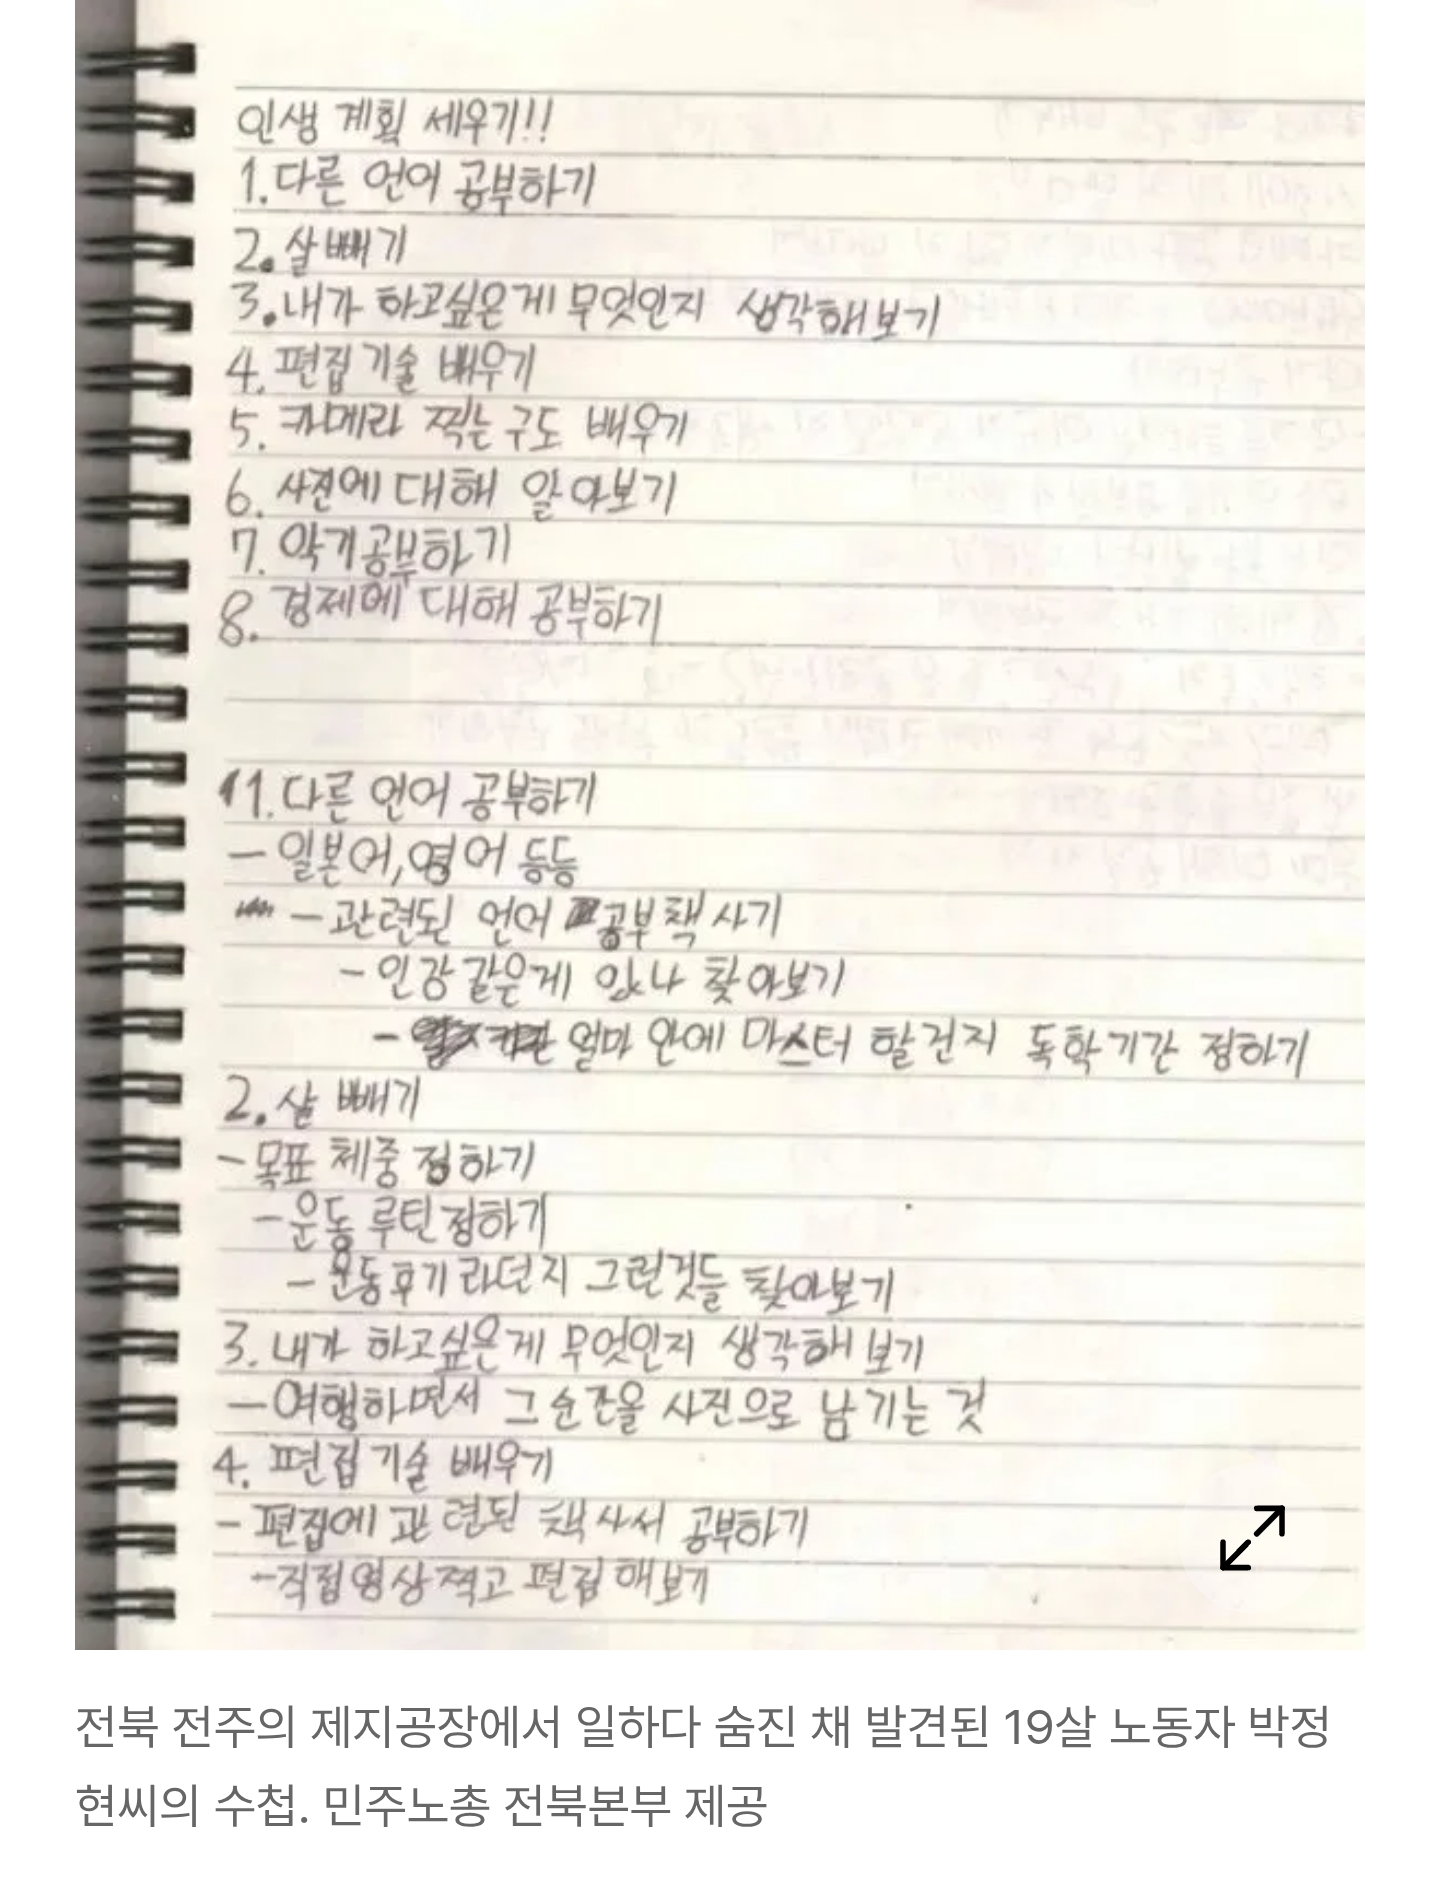 인생 계획 세우기!!
1. 다른 언어 공부하기
2. 살빼기
3. 내가 하고싶은게 무엇인지 생각해보기
4. 편집 기술 배우기
5. 카메라 찍는 구도 배우기
6. 사진에 대해 알아보기
7. 악기공부하기
8. 경제에 대해 공부하기
1. 다른 언어 공부하기
- 일본어, 영어 등등
- 관련된 언어 공부책 사기
- 인강 같은게 있나 찾아보기
- 얼마 안에 마스터 할건지 독학기간 정하기
2. 살 빼기
- 목표 체중 정하기
- 운동 루틴 정하기
- 운동후기 라던지 그런것들 찾아보기
3. 내가 하고싶은게 무엇인지 생각해 보기
- 여행하면서 그 순간을 사진으로 남기는 것
4. 편집 기술 배우기
- 편집에 관련된 책 사서 공부하기
- 직접 영상 찍고 편집 해보기
전북 전주의 제지공장에서 일하다 숨진 채 발견된 19살 노동자 박정
현씨의 수첩. 민주노총 전북본부 제공